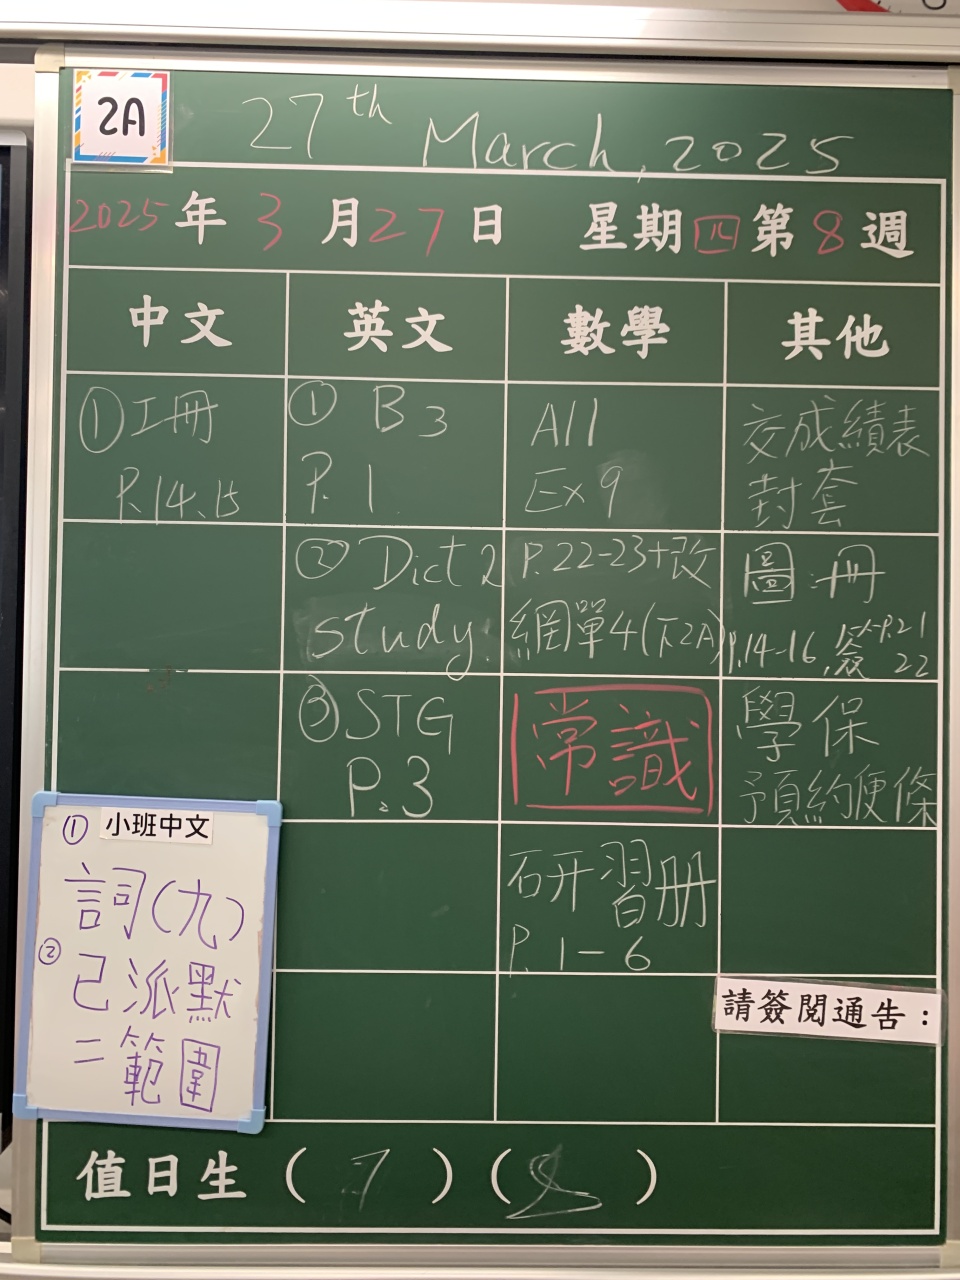 2A
27th March, 2025
2025年3月27日 星期四第8週
中文 英文 數學 其他
①工冊
P.14、15
① B3
P.1
All
Ex 9
交成績表
封套
② Dict 2
study.
P.22-23+改
網單4(下2A)
圖冊
P.14-16,簽P.21
22
③STG
P.3
常識
學保
預約便條
研習册
P.1-6
① 小班中文
詞(九)
② 已派默
二範圍
請簽閱通告：
值日生（7）（8）